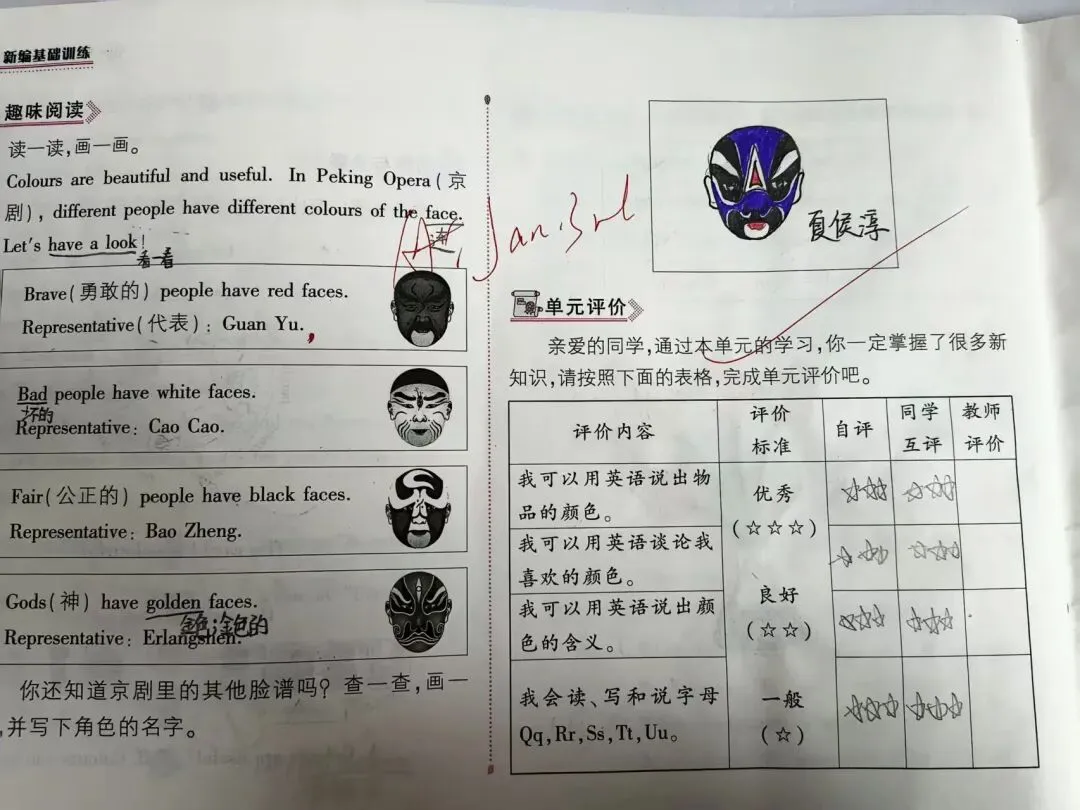 新编基础训练
趣味阅读
读一读,画一画。
Colours are beautiful and useful. In Peking Opera(京
剧), different people have different colours of the face.
Let's have a look!
看一看
Brave(勇敢的) people have red faces.
Representative(代表): Guan Yu.
Bad people have white faces.
坏的
Representative: Cao Cao.
Fair(公正的) people have black faces.
Representative: Bao Zheng.
Gods(神) have golden faces.
Representative: Erlangshen.
你还知道京剧里的其他脸谱吗? 查一查,画一
,并写下角色的名字。
A, Jan. 3rd
夏侯淳
单元评价
亲爱的同学,通过本单元的学习,你一定掌握了很多新
知识,请按照下面的表格,完成单元评价吧。
评价内容 评价标准 自评 同学互评 教师评价
我可以用英语说出物
品的颜色。
优秀
(☆☆☆)
☆☆☆ ☆☆☆
我可以用英语谈论我
喜欢的颜色。
☆☆☆ ☆☆☆
良好
(☆☆)
我可以用英语说出颜
色的含义。
☆☆☆ ☆☆☆
我会读、写和说字母
Qq,Rr,Ss,Tt,Uu。
一般
(☆)
☆☆☆ ☆☆☆